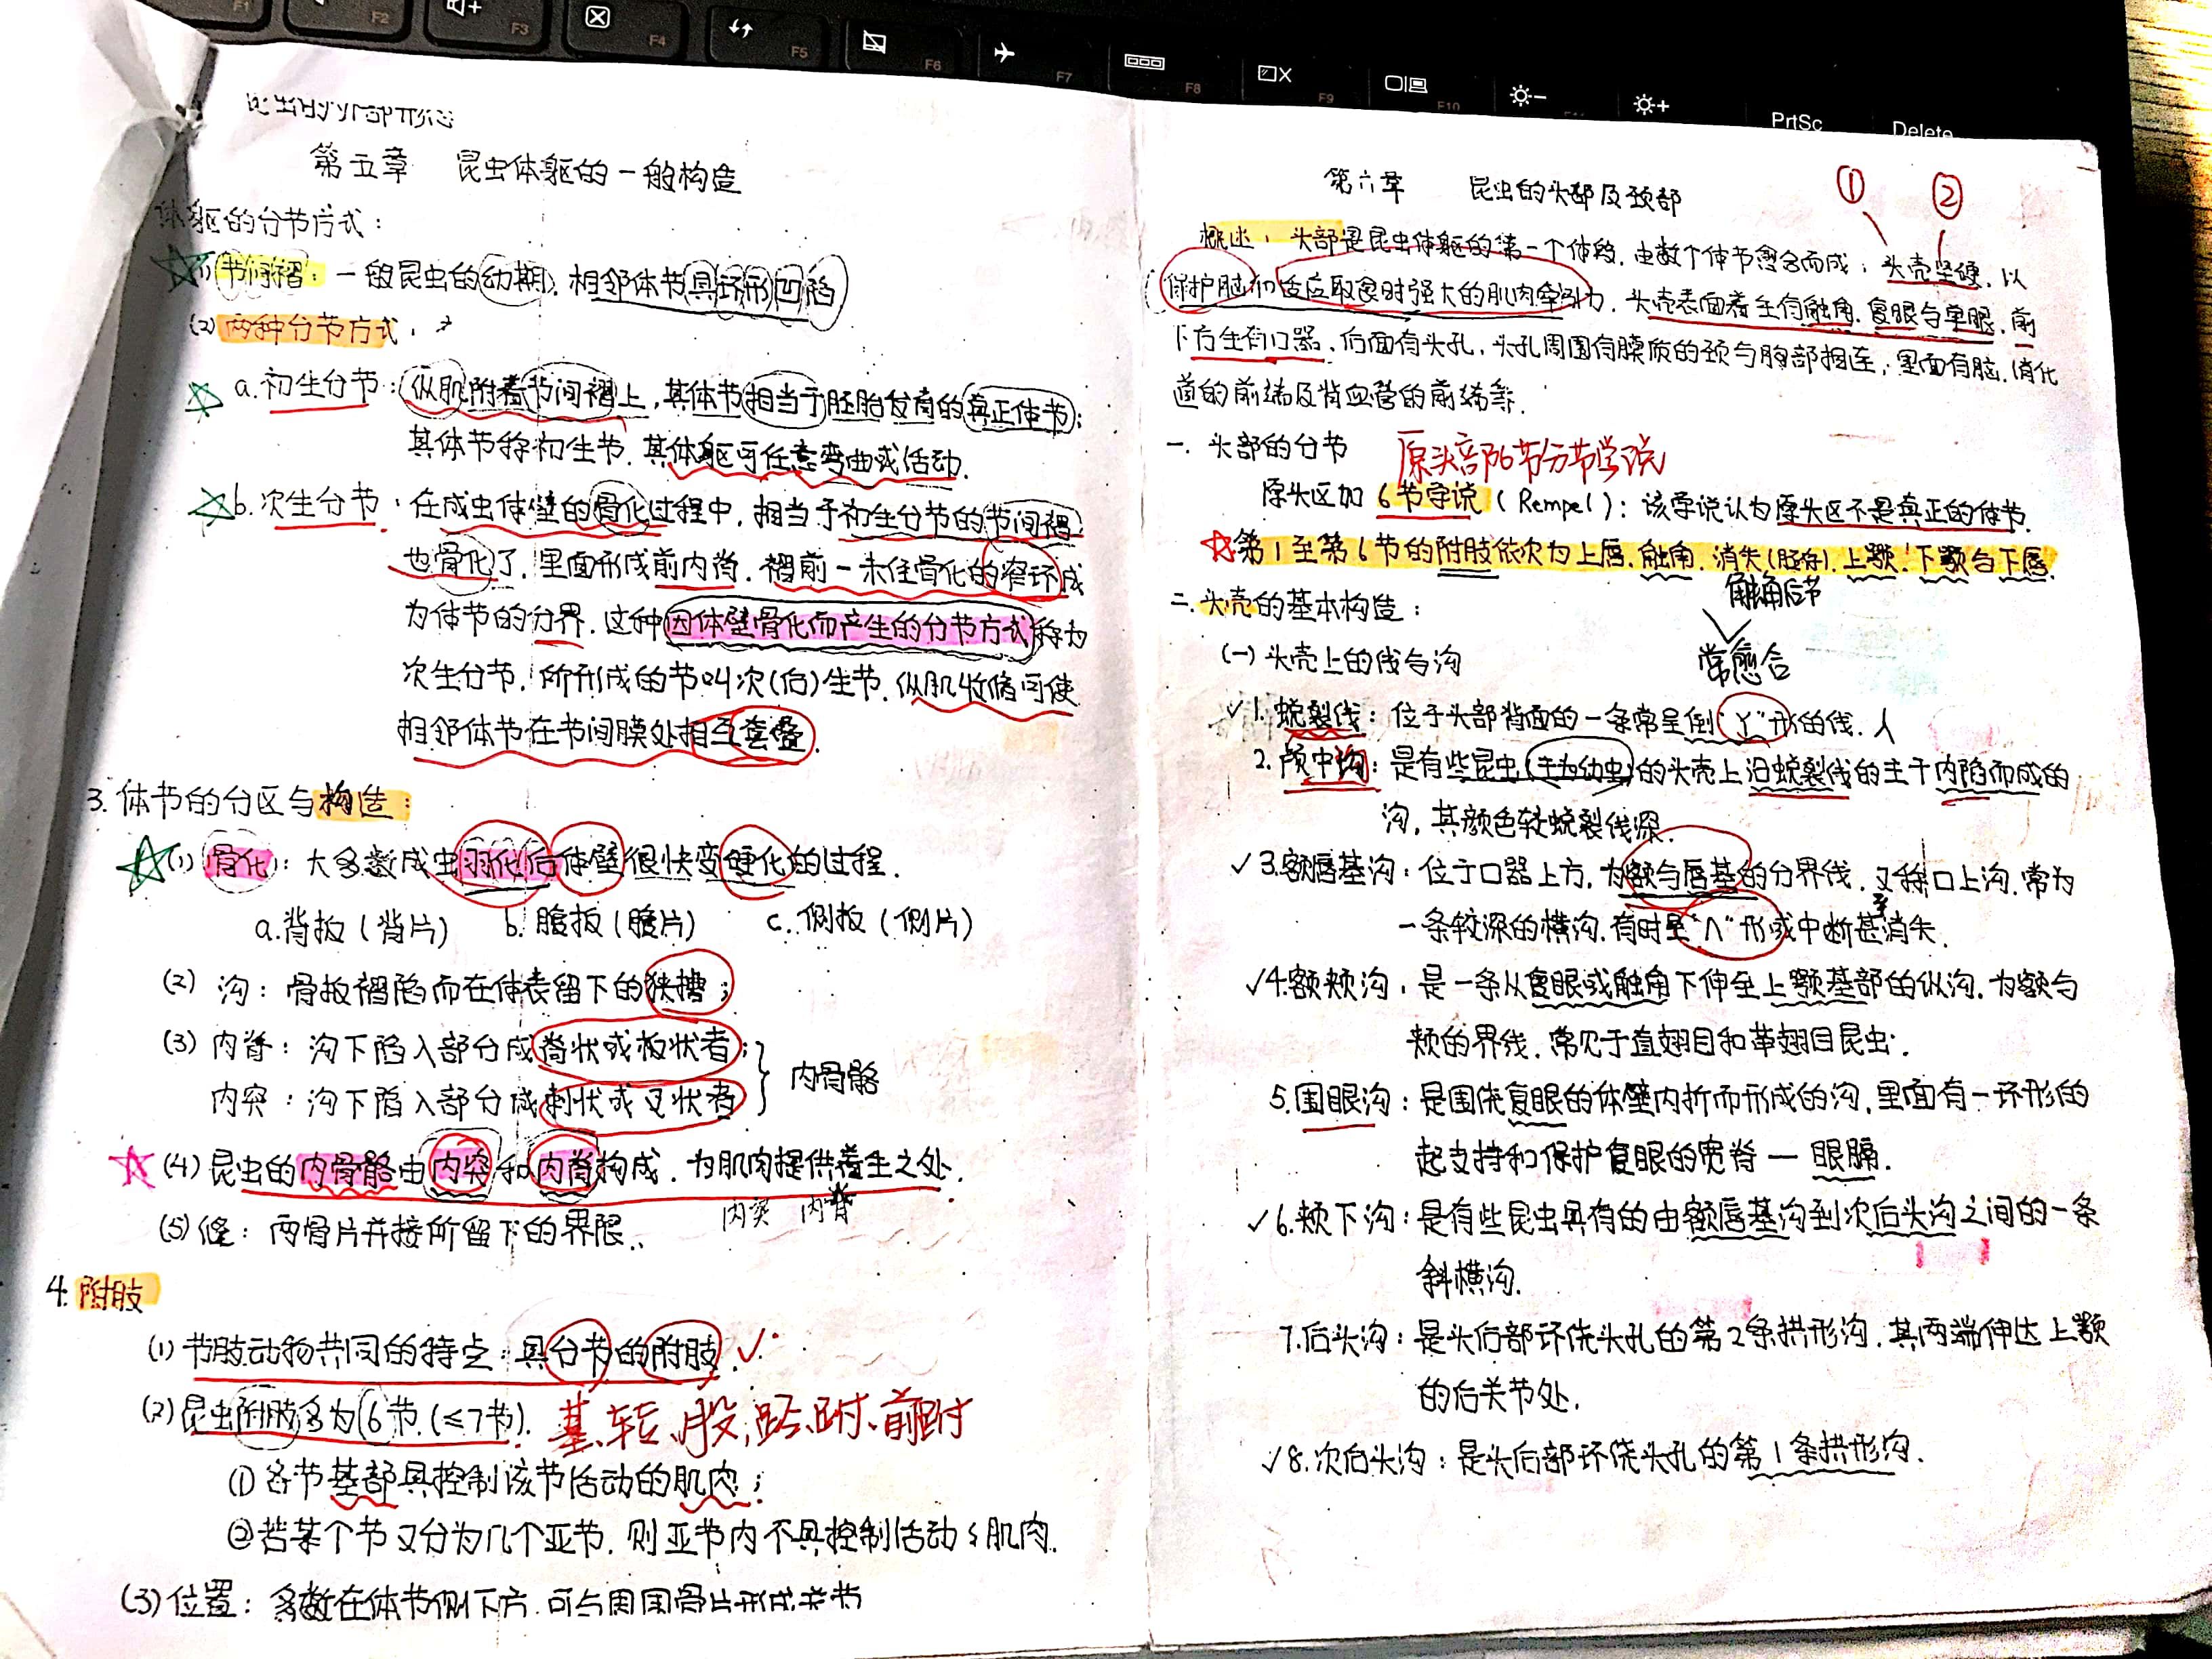 F1
F2
F3
F4
F5
F6
F7
F8
F9
F10
PrtSc
Delete
第五章 昆虫体躯的一般构造
体躯的分节方式：
(1) 节间褶：一般昆虫的幼期，相邻体节具环形凹陷
(2) 两种分节方式：
a. 初生分节：纵肌附着节间褶上，其体节相当于胚胎发育的真正体节；
其体节称初生节. 其体躯可任意弯曲或活动.
b. 次生分节：在成虫体壁的骨化过程中，相当于初生分节的节间褶
也骨化了，里面形成前内脊，褶前一未经骨化的窄环成
为体节的分界. 这种因体壁骨化而产生的分节方式称为
次生分节，所形成的节叫次(后)生节. 纵肌收缩可使
相邻体节在节间膜处相互套叠.
3. 体节的分区与构造：
(1) 骨化：大多数成虫羽化后体壁很快变硬化的过程.
a. 背板（背片） b. 腹板（腹片） c. 侧板（侧片）
(2) 沟：骨板褶陷而在体表留下的狭槽；
(3) 内脊：沟下陷入部分成脊状或板状者；
内突：沟下陷入部分成刺状或叉状者
内骨骼
(4) 昆虫的内骨骼由内突和内脊构成，为肌肉提供着生之处.
内突 内脊
(5) 缝：两骨片并接所留下的界限.
4. 附肢
(1) 节肢动物共同的特点：具分节的附肢. ✓
(2) 昆虫附肢多为6节 (≤7节). 基、转、股、胫、跗、前跗
① 各节基部具控制该节活动的肌肉；
② 若某个节又分为几个亚节，则亚节内不具控制活动的肌肉.
(3) 位置：多数在体节侧下方，可与周围骨片形成关节
第六章 昆虫的头部及颈部
① ②
概述：头部是昆虫体躯的第一个体段，由数个体节愈合而成；头壳坚硬，以
保护脑和适应取食时强大的肌肉牵引力. 头壳表面着生有触角、复眼与单眼，前
下方生有口器，后面有头孔，头孔周围有膜质的颈与胸部相连，里面有脑、消化
道的前端及背血管的前端等.
一. 头部的分节 原头部6节分节学说
原头区加6节学说（Rempel）：该学说认为原头区不是真正的体节.
第1至第6节的附肢依次为上唇、触角、消失(胚存)、上颚、下颚与下唇.
触角后节
二. 头壳的基本构造：
常愈合
(一) 头壳上的线与沟
✓1. 蜕裂线：位于头部背面的一条常呈倒"Y"形的线. 人
2. 颅中沟：是有些昆虫(主为幼虫)的头壳上沿蜕裂线的主干内陷而成的
沟，其颜色较蜕裂线深.
✓3. 额唇基沟：位于口器上方，为额与唇基的分界线，又称口上沟. 常为
一条较深的横沟，有时呈"∧"形或中断甚至消失.
✓4. 额颊沟：是一条从复眼或触角下伸至上颚基部的纵沟，为额与
颊的界线，常见于直翅目和革翅目昆虫.
5. 围眼沟：是围绕复眼的体壁内折而形成的沟，里面有一环形的
起支持和保护复眼的宽脊 — 眼膈.
✓6. 颊下沟：是有些昆虫具有的由额唇基沟到次后头沟之间的一条
斜横沟.
7. 后头沟：是头后部环绕头孔的第2条拱形沟，其两端伸达上颚
的后关节处.
✓8. 次后头沟：是头后部环绕头孔的第1条拱形沟.